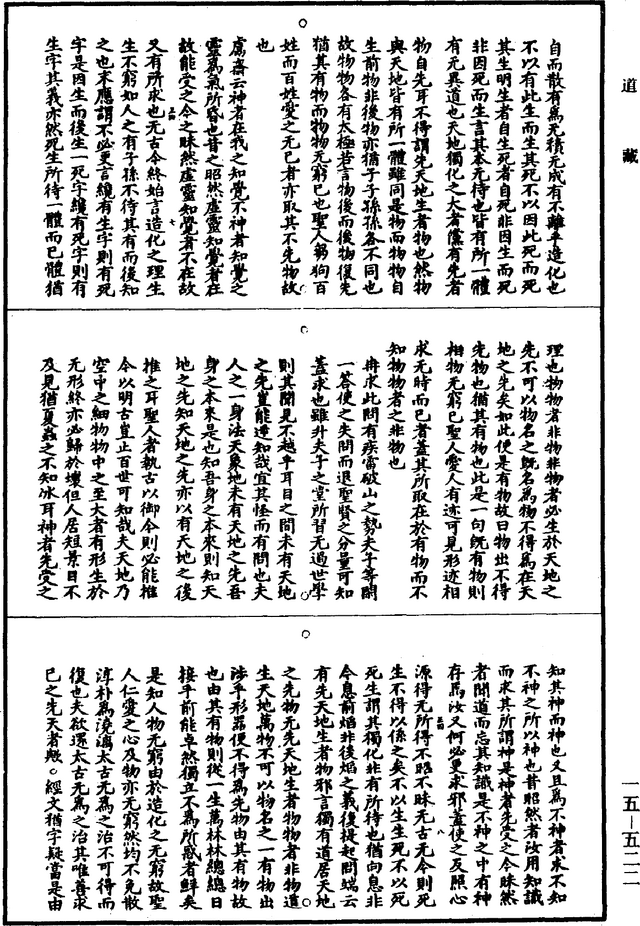 道藏
自而散有為无積无成有不離乎造化也
不以有此生而生其死不以因此死而死
其生明生者自生死者自死非因生而死
非因死而生言其本无待也皆有所一體
有无異道也天地獨化之大者儻有先者
物自先耳不得謂先天地生者物也然物
與天地皆有所一體雖同是物而物物自
生前物非後物亦猶子子孫孫各不同也
故物物各有太極若言物後而後物復先
猶其有物而物物无窮已也聖人芻狗百
姓而百姓愛之无已者亦取其不先物故
也
鬳齋云神者在我之知覺不神者知覺之
靈為氣所昏也昔之昭然虛靈知覺者在
故能受之今之昧然虛靈知覺者不在故
又有所求也无古今終始言造化之理生
生不窮如人之有子孫不待其有而後知
之也末應謂不必更言纔有生字則有死
字是因生而後生一死字纔有死字則有
生字其義亦然死生所待一體而已體猶
理也物物者非物非物者必生於天地之
先不可以物名之既名為物不得為在天
地之先矣如此便是有物故曰物出不得
先物也猶其有物也此是一句既有物則
相物无窮已聖人愛人有迹可見形迹相
求无時而已者蓋其所取在於有物而不
知物物者之非物也
冉求此問有疾雷破山之勢夫子等閑
一答使之失問而退聖賢之分量可知
蓋求也雖升夫子之堂所習无過世學
則其聞見不越乎耳目之間未有天地
之先豈能達知哉宜其怪而有問也夫
人之一身法天象地未有天地之先吾
身之本來是也知吾身之本來則知天
地之先知天地之先亦以有天地之後
推之耳聖人者執古以御今則必能推
今以明古豈止百世可知哉夫天地乃
空中之細物物中之至大者有形生於
无形終亦必歸於壞但人居短景目不
及見猶夏蟲之不知冰耳神者先受之
知其神而神也又且為不神者求不知
不神之所以神也昔昭然者汝用知識
而求其所謂神是神者先受之今昧然
者聞道而忘其知識是不神之中有神
存焉汝又何必更求邪蓋使之反照心
源得无所得不昭不昧无古无今則死
生不得以係之矣不以生生死不以死
死生謂其獨化非有所待也猶向息非
今息前焰非後焰之義後提起問端云
有先天地生者物邪言獨有道居天地
之先物无先天地生者物物者非物道
生天地萬物不可以物名之一有物出
涉乎形器便不得為先物由其有物故
也由其有物則從一生萬林林總總日
接乎前能卓然獨立不為所惑者鮮矣
是知人物无窮由於造化之无窮故聖
人仁愛之心及物亦无窮然均不免散
淳朴為澆漓太古无為之治不可得而
復也夫欲還太古无為之治其唯善求
已之先天者歟○經文猶字疑當是由
一五－五二二